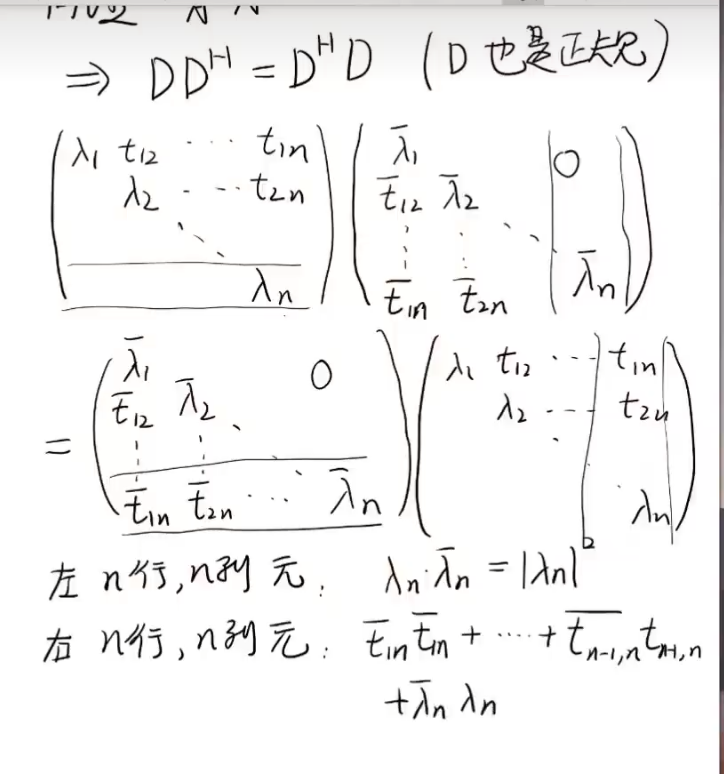 ⇒ DDᴴ = DᴴD (D 也是正规)
λ₁ t₁₂ ⋯ t₁ₙ λ̄₁ 0
λ₂ ⋯ t₂ₙ t̄₁₂ λ̄₂
⋱ ⋮ ⋮ ⋱
λₙ t̄₁ₙ t̄₂ₙ λ̄ₙ
λ̄₁ 0 λ₁ t₁₂ ⋯ t₁ₙ
= t̄₁₂ λ̄₂ λ₂ ⋯ t₂ₙ
t̄₁ₙ t̄₂ₙ ⋯ λ̄ₙ λₙ
左 n行,n列 元: λₙ·λ̄ₙ = |λₙ|²
右 n行,n列 元: t̄₁ₙ t̄₁ₙ + ⋯ + t̄ₙ₋₁,ₙ tₙ₋₁,ₙ
+ λ̄ₙ λₙ